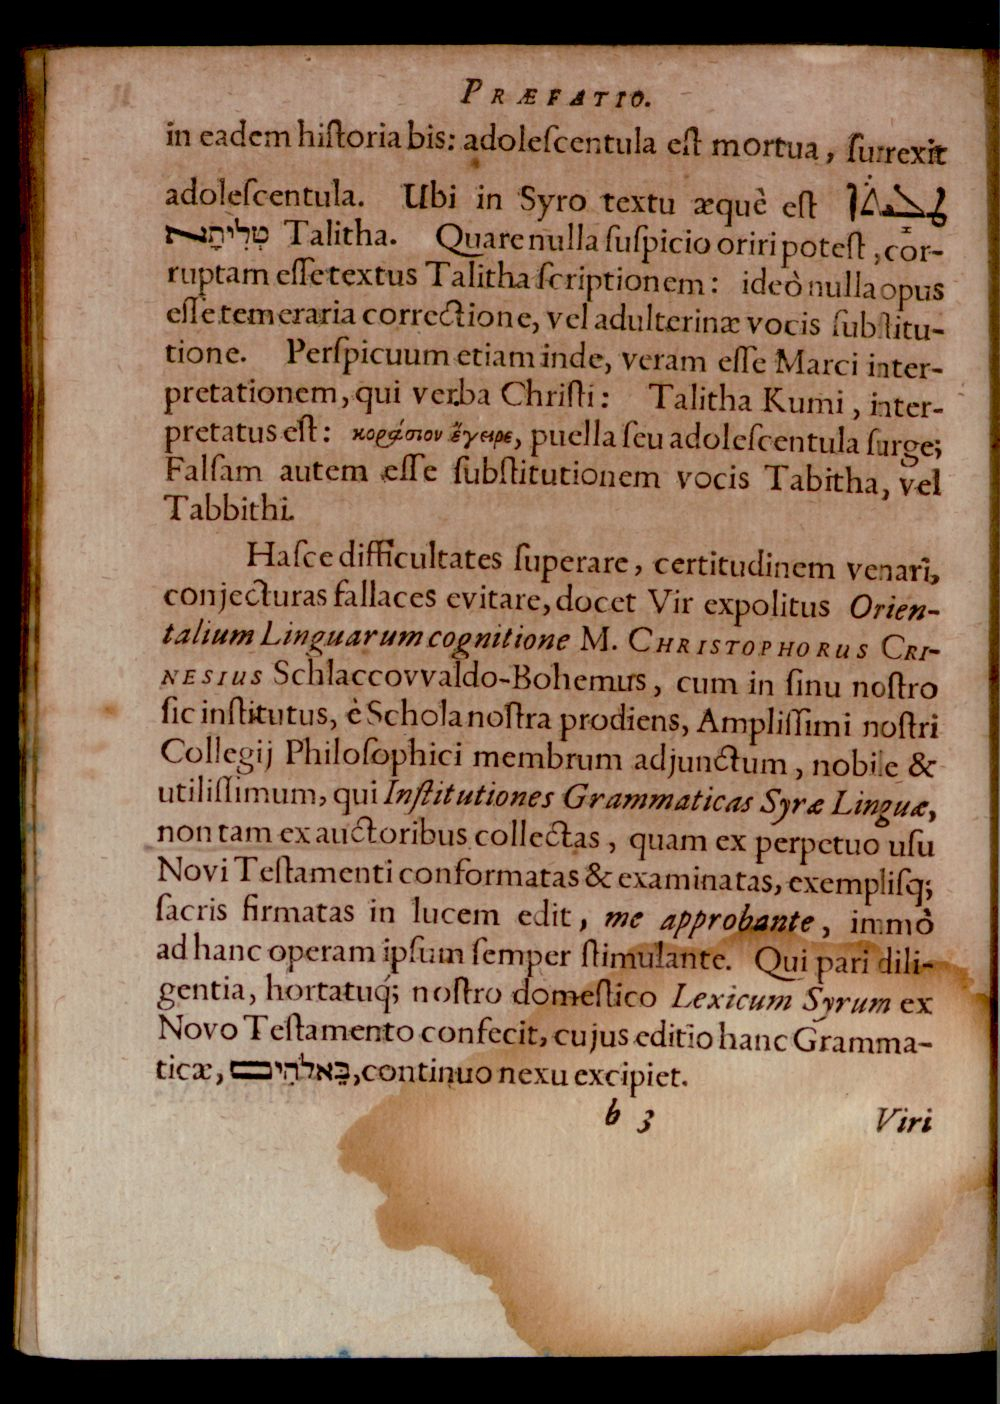 PRÆFATIO.
in eadem historia bis: adolescentula est mortua, surrexit
adolescentula. Ubi in Syro textu æquè est ܛܠܝܬܐ
טְלִיתָא Talitha. Quare nulla suspicio oriri potest, cor-
ruptam esse textus Talitha scriptionem: ideò nulla opus
esse temeraria correctione, vel adulterinæ vocis substitu-
tione. Perspicuum etiam inde, veram esse Marci inter-
pretationem, qui verba Christi: Talitha Kumi, inter-
pretatus est: κοράσιον ἔγειρε, puella seu adolescentula surge;
Falsam autem esse substitutionem vocis Tabitha, vel
Tabbithi.
Hasce difficultates superare, certitudinem venari,
conjecturas fallaces evitare, docet Vir expolitus Orien-
talium Linguarum cognitione M. CHRISTOPHORUS CRI-
NESIUS Schlaccovvaldo-Bohemus, cum in sinu nostro
sic institutus, è Schola nostra prodiens, Amplissimi nostri
Collegij Philosophici membrum adjunctum, nobile &
utilissimum, qui Institutiones Grammaticas Syræ Linguæ,
non tam ex auctoribus collectas, quam ex perpetuo usu
Novi Testamenti conformatas & examinatas, exemplisq;
sacris firmatas in lucem edit, me approbante, immò
ad hanc operam ipsum semper stimulante. Qui pari dili-
gentia, hortatuq; nostro domestico Lexicum Syrum ex
Novo Testamento confecit, cujus editio hanc Gramma-
ticæ, בֵּאלֹהִים, continuo nexu excipiet.
b 3 Viri